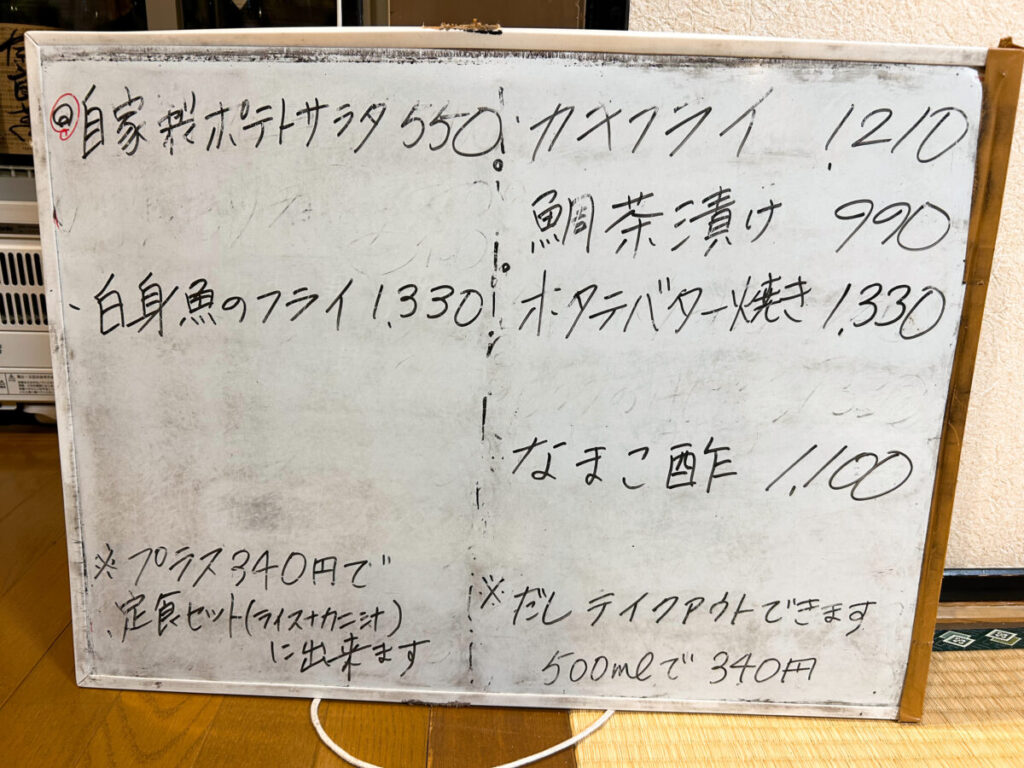 自家製ポテトサラダ 550
白身魚のフライ 1,330
※プラス340円で
定食セット(ライス+カニ汁)
に出来ます
カキフライ 1,210
鯛茶漬け 990
ホタテバター焼き 1,330
なまこ酢 1,100
※だしテイクアウトできます
500mlで 340円